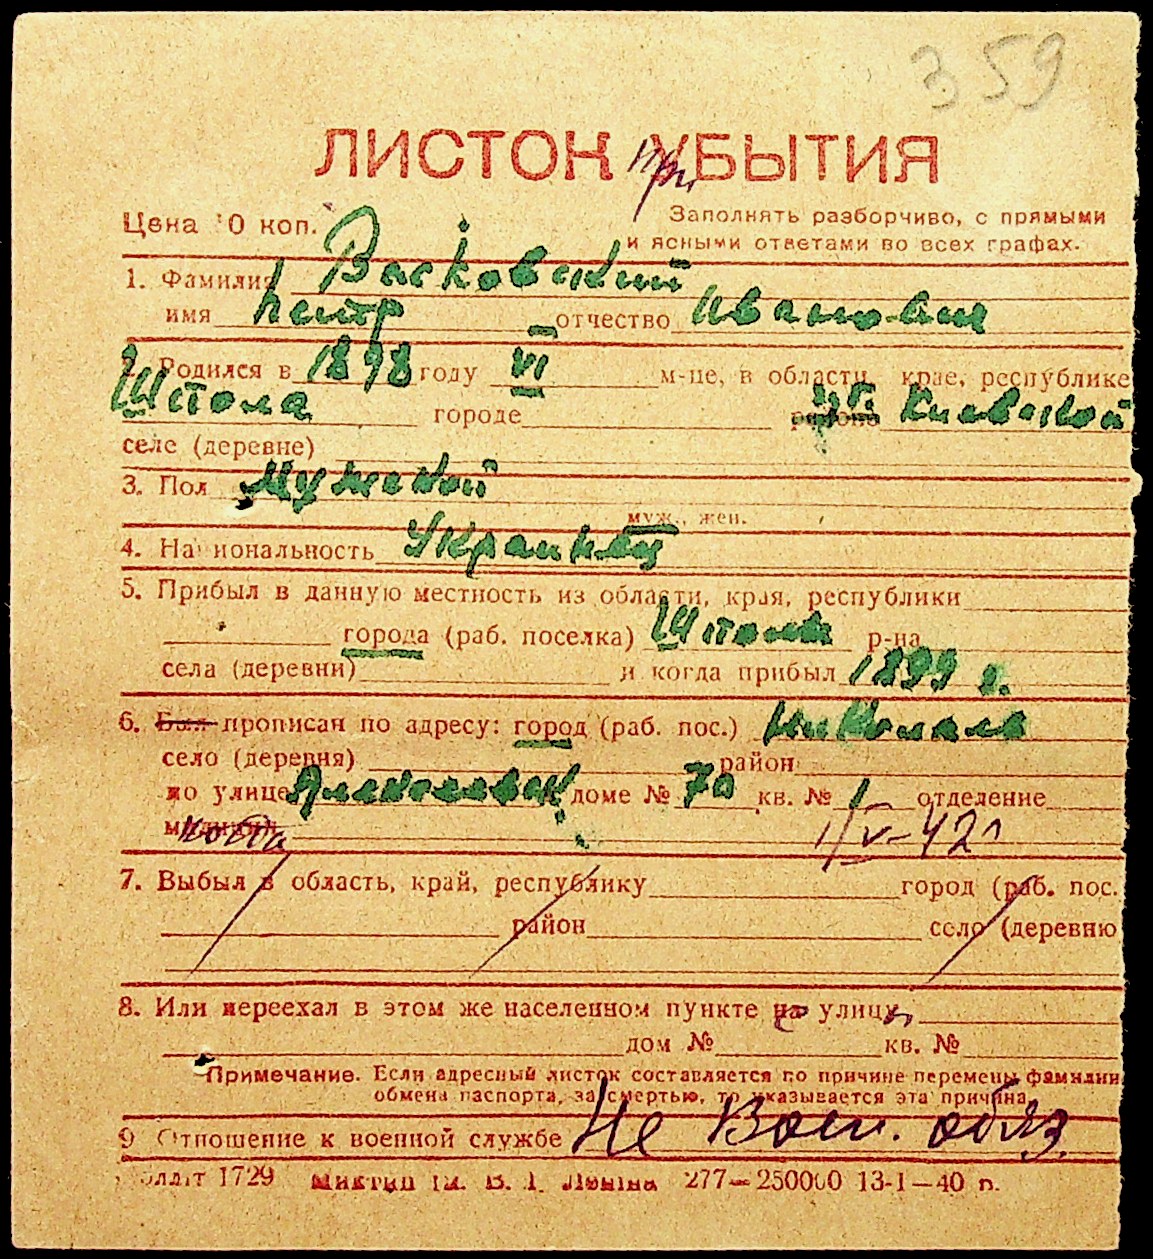 359
ЛИСТОК УБЫТИЯ
при
Цена 10 коп.
Заполнять разборчиво, с прямыми
и ясными ответами во всех графах.
1. Фамилия Васковский
имя Петр отчество Иванович
2. Родился в 1898 году VI м-це, в области, крае, республике
Шпола городе района Киевской
селе (деревне)
3. Пол Мужской
муж., жен.
4. Национальность Украинец
5. Прибыл в данную местность из области, края, республики
города (раб. поселка) Шпола р-на
села (деревни) и когда прибыл 1899 г.
6. Был прописан по адресу: город (раб. пос.)
село (деревня) район
по улице доме № 70 кв. № 1 отделение
милиции когда 1/V-42
7. Выбыл в область, край, республику город (раб. пос.
район село (деревню
8. Или переехал в этом же населенном пункте на улицу
дом № кв. №
Примечание. Если адресный листок составляется по причине перемены фамилии
обмена паспорта, за смертью, то указывается эта причина
9 Отношение к военной службе Не Воен. обяз.
1729 им. В. І. Леніна 277—250000 13-I—40 р.